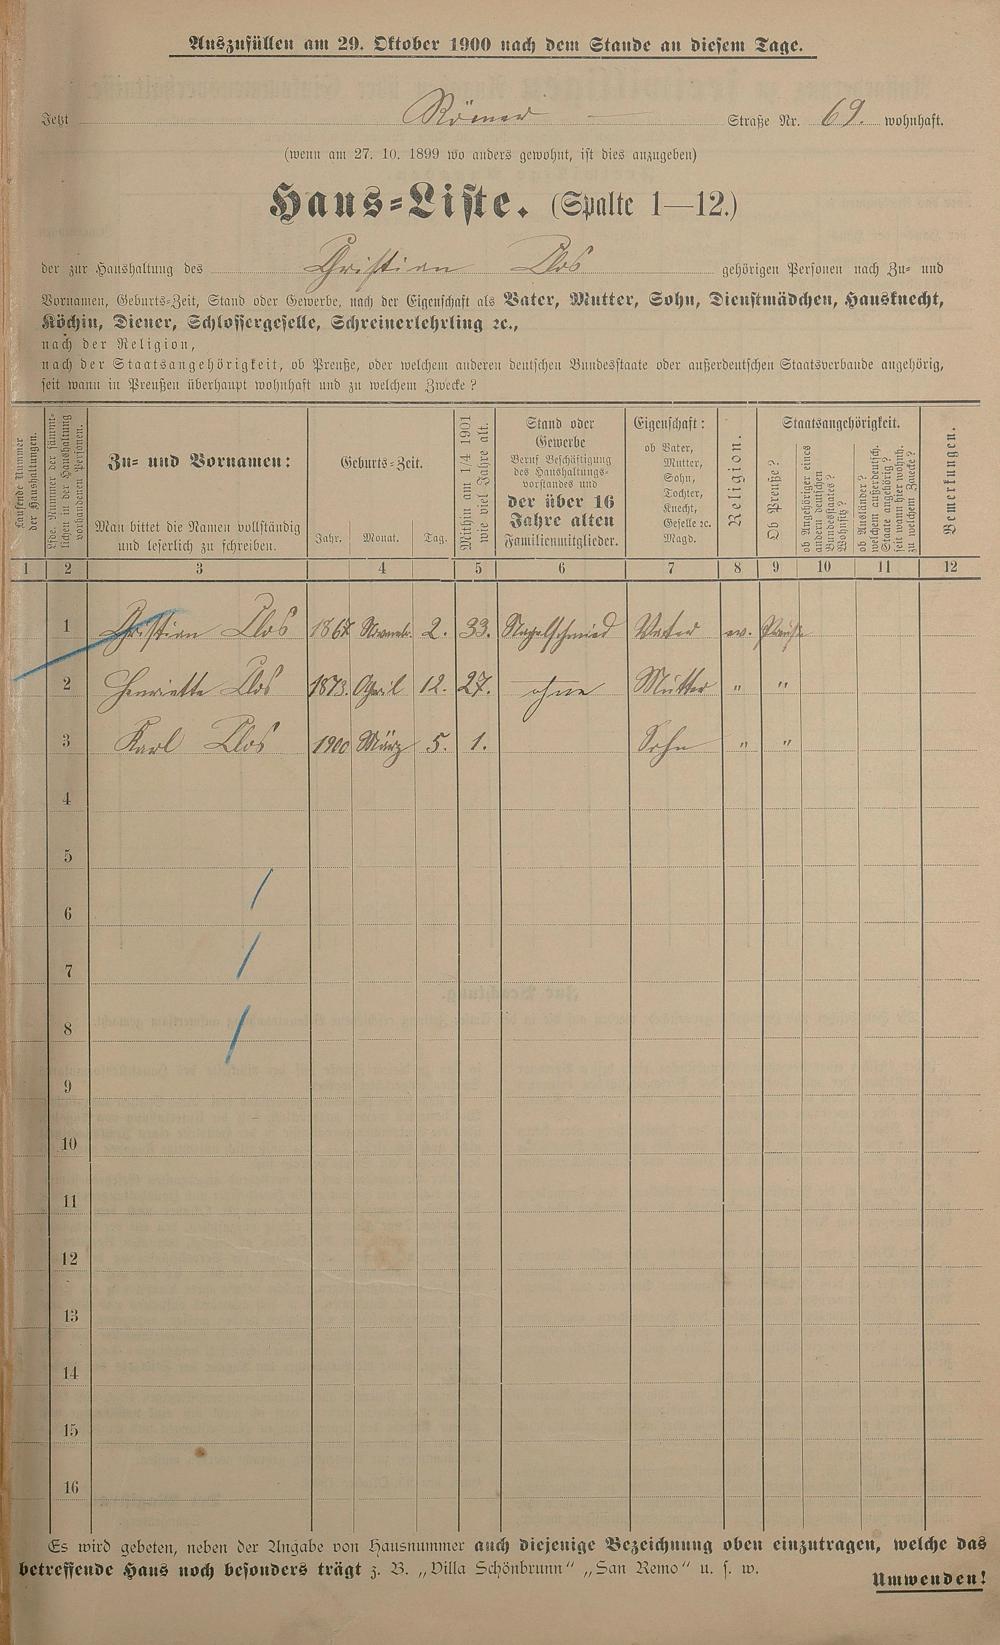 Auszufüllen am 29. Oktober 1900 nach dem Stande an diesem Tage.
Jetzt Römer Straße Nr. 69. wohnhaft.
(wenn am 27. 10. 1899 wo anders gewohnt, ist dies anzugeben)
Haus-Liste. (Spalte 1—12.)
der zur Haushaltung des Christian Clos gehörigen Personen nach Zu- und
Vornamen, Geburts-Zeit, Stand oder Gewerbe, nach der Eigenschaft als Vater, Mutter, Sohn, Dienstmädchen, Hausknecht,
Köchin, Diener, Schlossergeselle, Schreinerlehrling ꝛc.,
nach der Religion,
nach der Staatsangehörigkeit, ob Preuße, oder welchem anderen deutschen Bundesstaate oder außerdeutschen Staatsverbande angehörig,
seit wann in Preußen überhaupt wohnhaft und zu welchem Zwecke?
Laufende Nummer
der Haushaltungen.
Lfde. Nummer der sämmt-
lichen in der Haushaltung
vorhandenen Personen.
Zu- und Vornamen:
Man bittet die Namen vollständig
und leserlich zu schreiben.
Geburts-Zeit.
Jahr. Monat. Tag.
Mithin am 1/4 1901
wie viel Jahre alt.
Stand oder
Gewerbe
Beruf Beschäftigung
des Haushaltungs-
vorstandes und
der über 16
Jahre alten
Familienmitglieder.
Eigenschaft:
ob Vater,
Mutter,
Sohn,
Tochter,
Knecht,
Geselle ꝛc.
Magd.
Religion.
Staatsangehörigkeit.
Ob Preuße?
ob Angehöriger eines
andern deutschen
Bundesstaates?
Wohnsitz?
ob Ausländer?
welchem außerdeutsch.
Staate angehörig?
seit wann hier wohnh.
zu welchem Zwecke?
Bemerkungen.
1 2 3 4 5 6 7 8 9 10 11 12
1 Christian Clos 1867 Novemb. 2. 33. Nagelschmied Vater ev. Preuße
2 Henriette Clos 1873. April 12. 27. ohne Mutter " "
3 Karl Clos 1900 März 5. 1. Sohn " "
4
5
6
7
8
9
10
11
12
13
14
15
16
Es wird gebeten, neben der Angabe von Hausnummer auch diejenige Bezeichnung oben einzutragen, welche das
betreffende Haus noch besonders trägt z. B. „Villa Schönbrunn" „San Remo" u. s. w.
Umwenden!